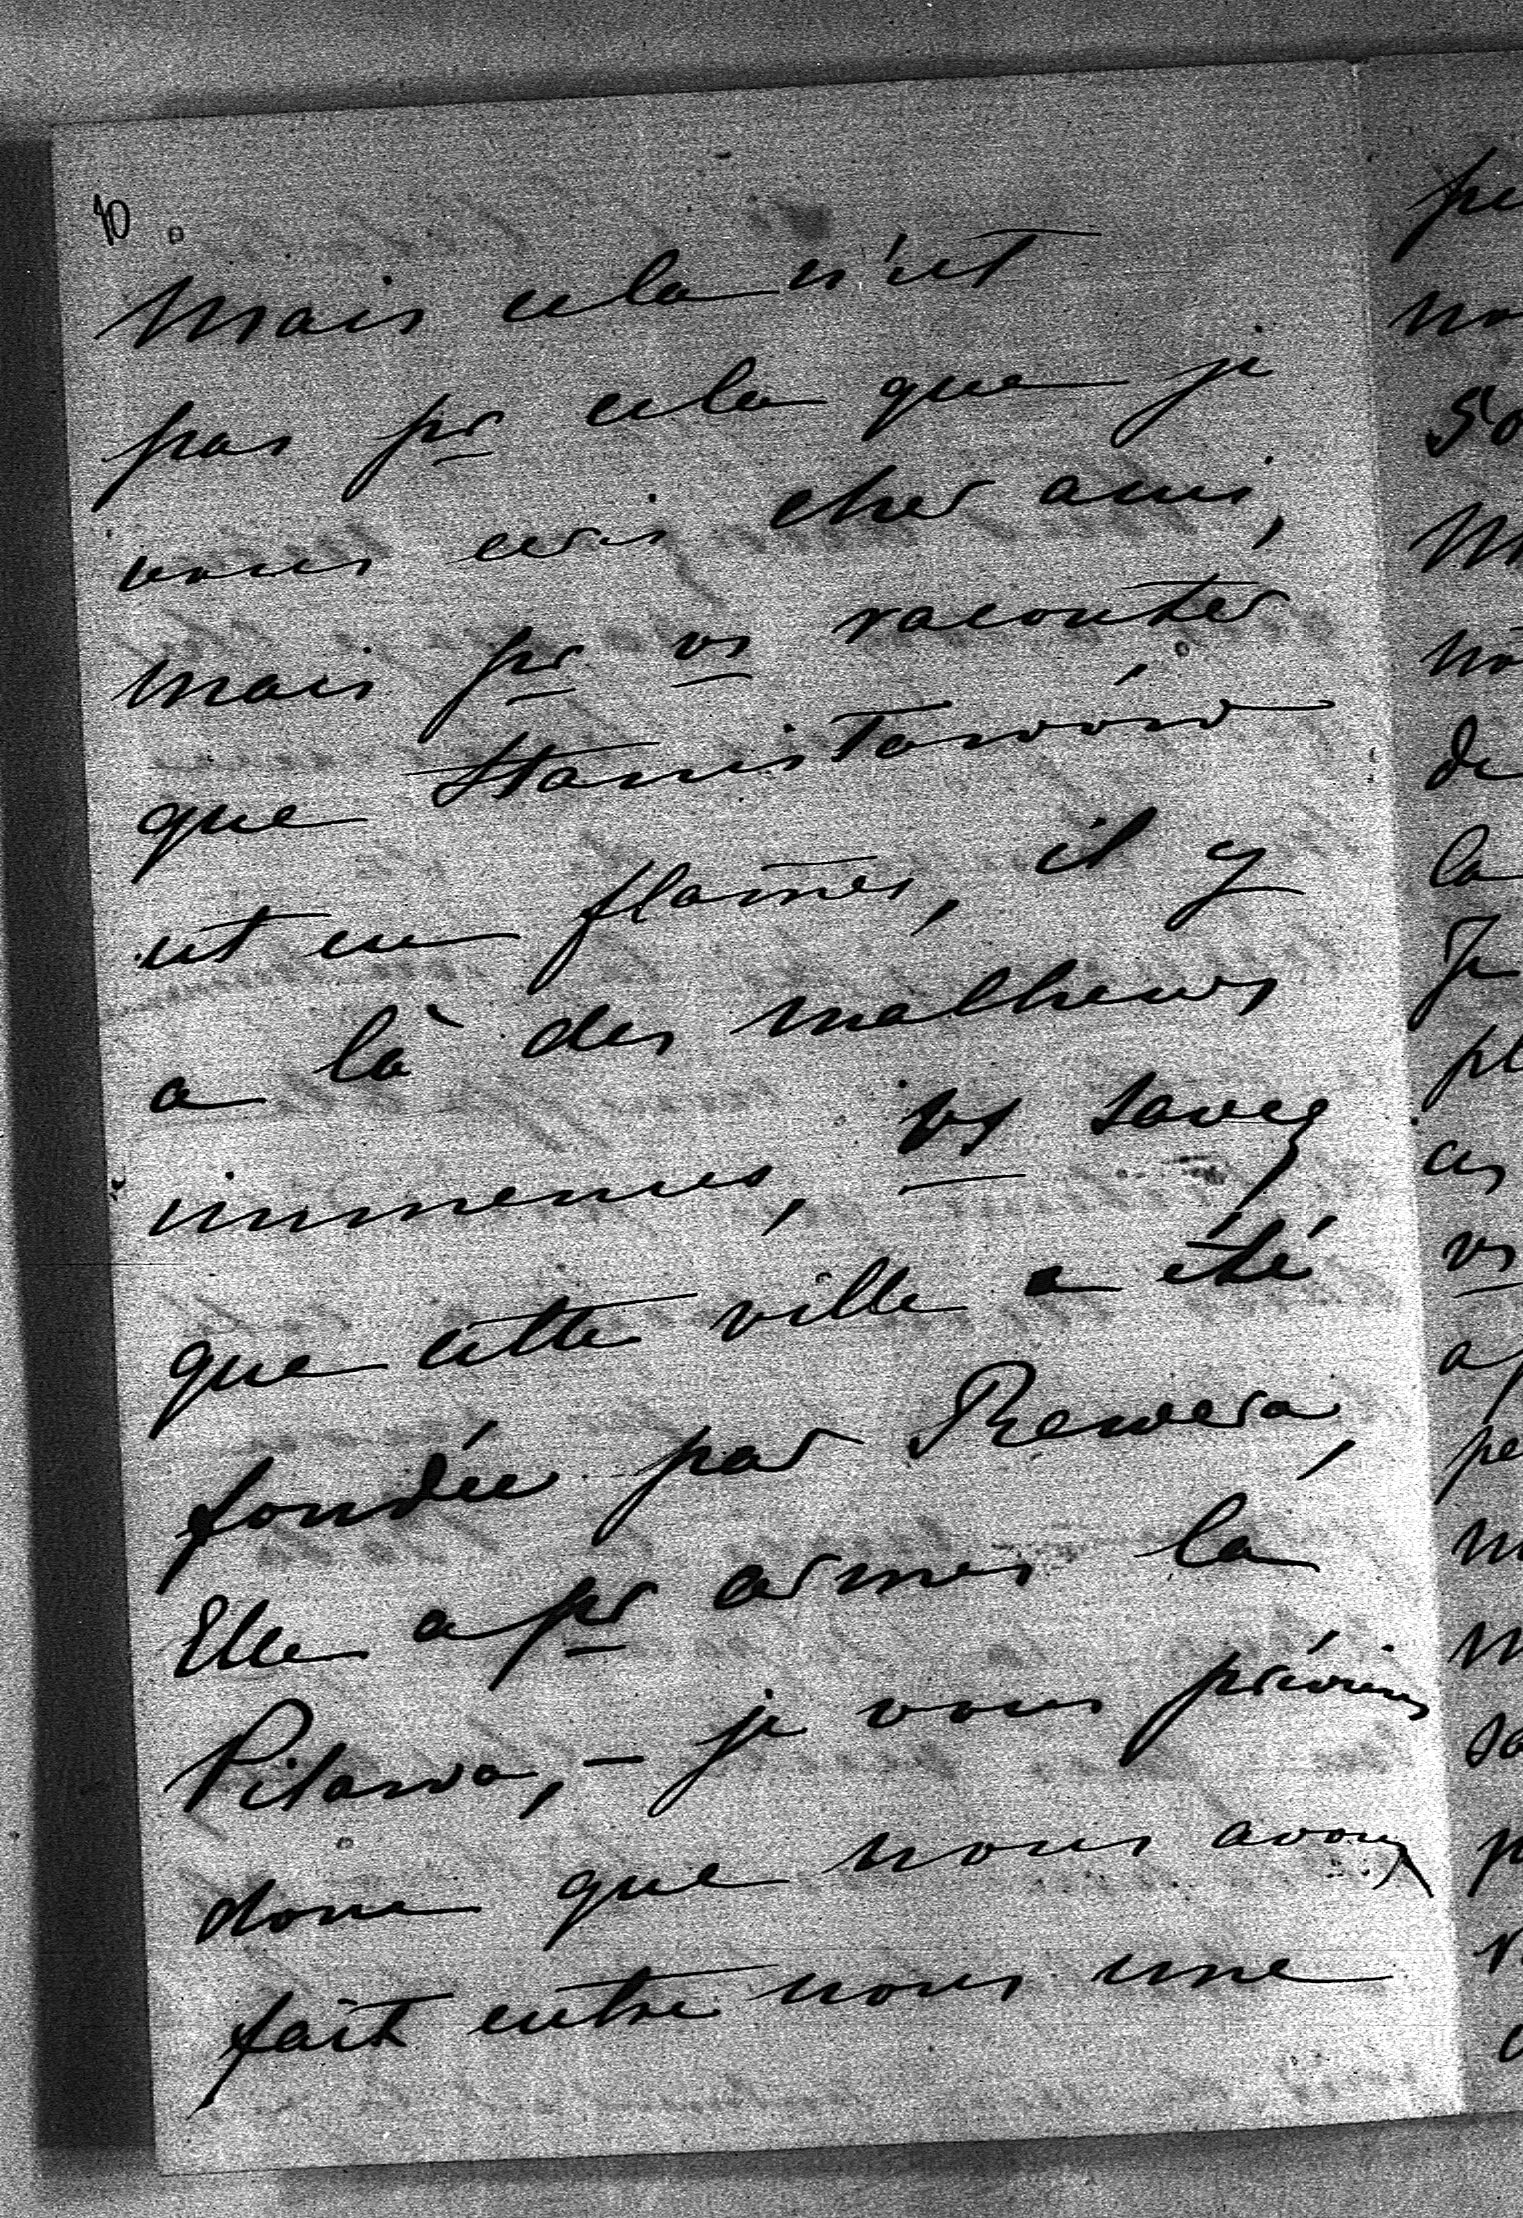 10
Mais cela n'est
pas pr cela que je
vous ecris cher ami,
mais pr vs raconter
que Stanisławów
est en flam̄es, il y
a là des malheurs
immenses, vs savez
que cette ville a été
fondée par Rewera,
Elle a pr armes la
Pilawa, – je vous préviens
donc que nous avons
fait entre nous une